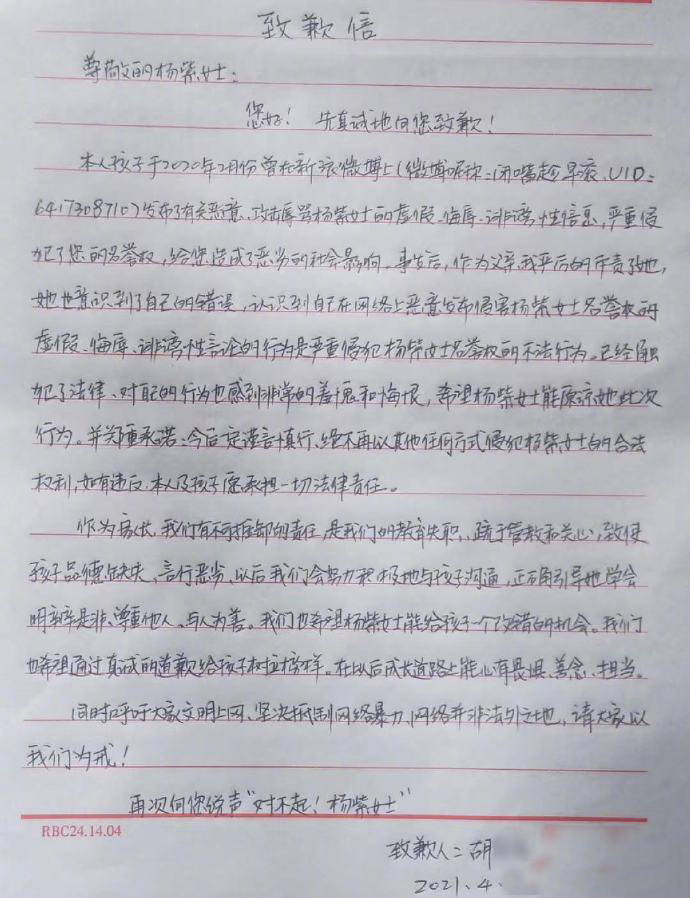 致歉信
尊敬的杨紫女士：
您好！ 先真诚地向您致歉！
本人孩子于2020年2月份曾在新浪微博上（微博昵称：闭嘴趁早滚、UID：
6417308710）发布了有关恶意、攻击辱骂杨紫女士的虚假、侮辱、诽谤性信息，严重侵
犯了您的名誉权，给您造成了恶劣的社会影响。事发后，作为父亲，我严厉的斥责了她，
她也意识到了自己的错误，认识到自己在网络上恶意发布侵害杨紫女士名誉权的
虚假、侮辱、诽谤性言论的行为是严重侵犯杨紫女士名誉权的不法行为。已经触
犯了法律、对自己的行为也感到非常的羞愧和悔恨，希望杨紫女士能原谅她此次
行为。并郑重承诺：今后定谨言慎行、绝不再以其他任何方式侵犯杨紫女士的合法
权利，如有违反，本人及孩子愿承担一切法律责任。
作为家长，我们有不可推卸的责任，是我们的教育失职，疏于管教和关心，致使
孩子品德缺失，言行恶劣，以后我们会努力积极地与孩子沟通，正确引导她学会
明辨是非、尊重他人、与人为善。我们也希望杨紫女士能给孩子一个改错的机会。我们
也希望通过真诚的道歉给孩子树立榜样。在以后成长道路上能心有畏惧、善念、担当。
同时呼吁大家文明上网、坚决抵制网络暴力，网络并非法外之地，请大家以
我们为戒！
再次向您说声“对不起！杨紫女士”
RBC24.14.04
致歉人：胡
2021.4.